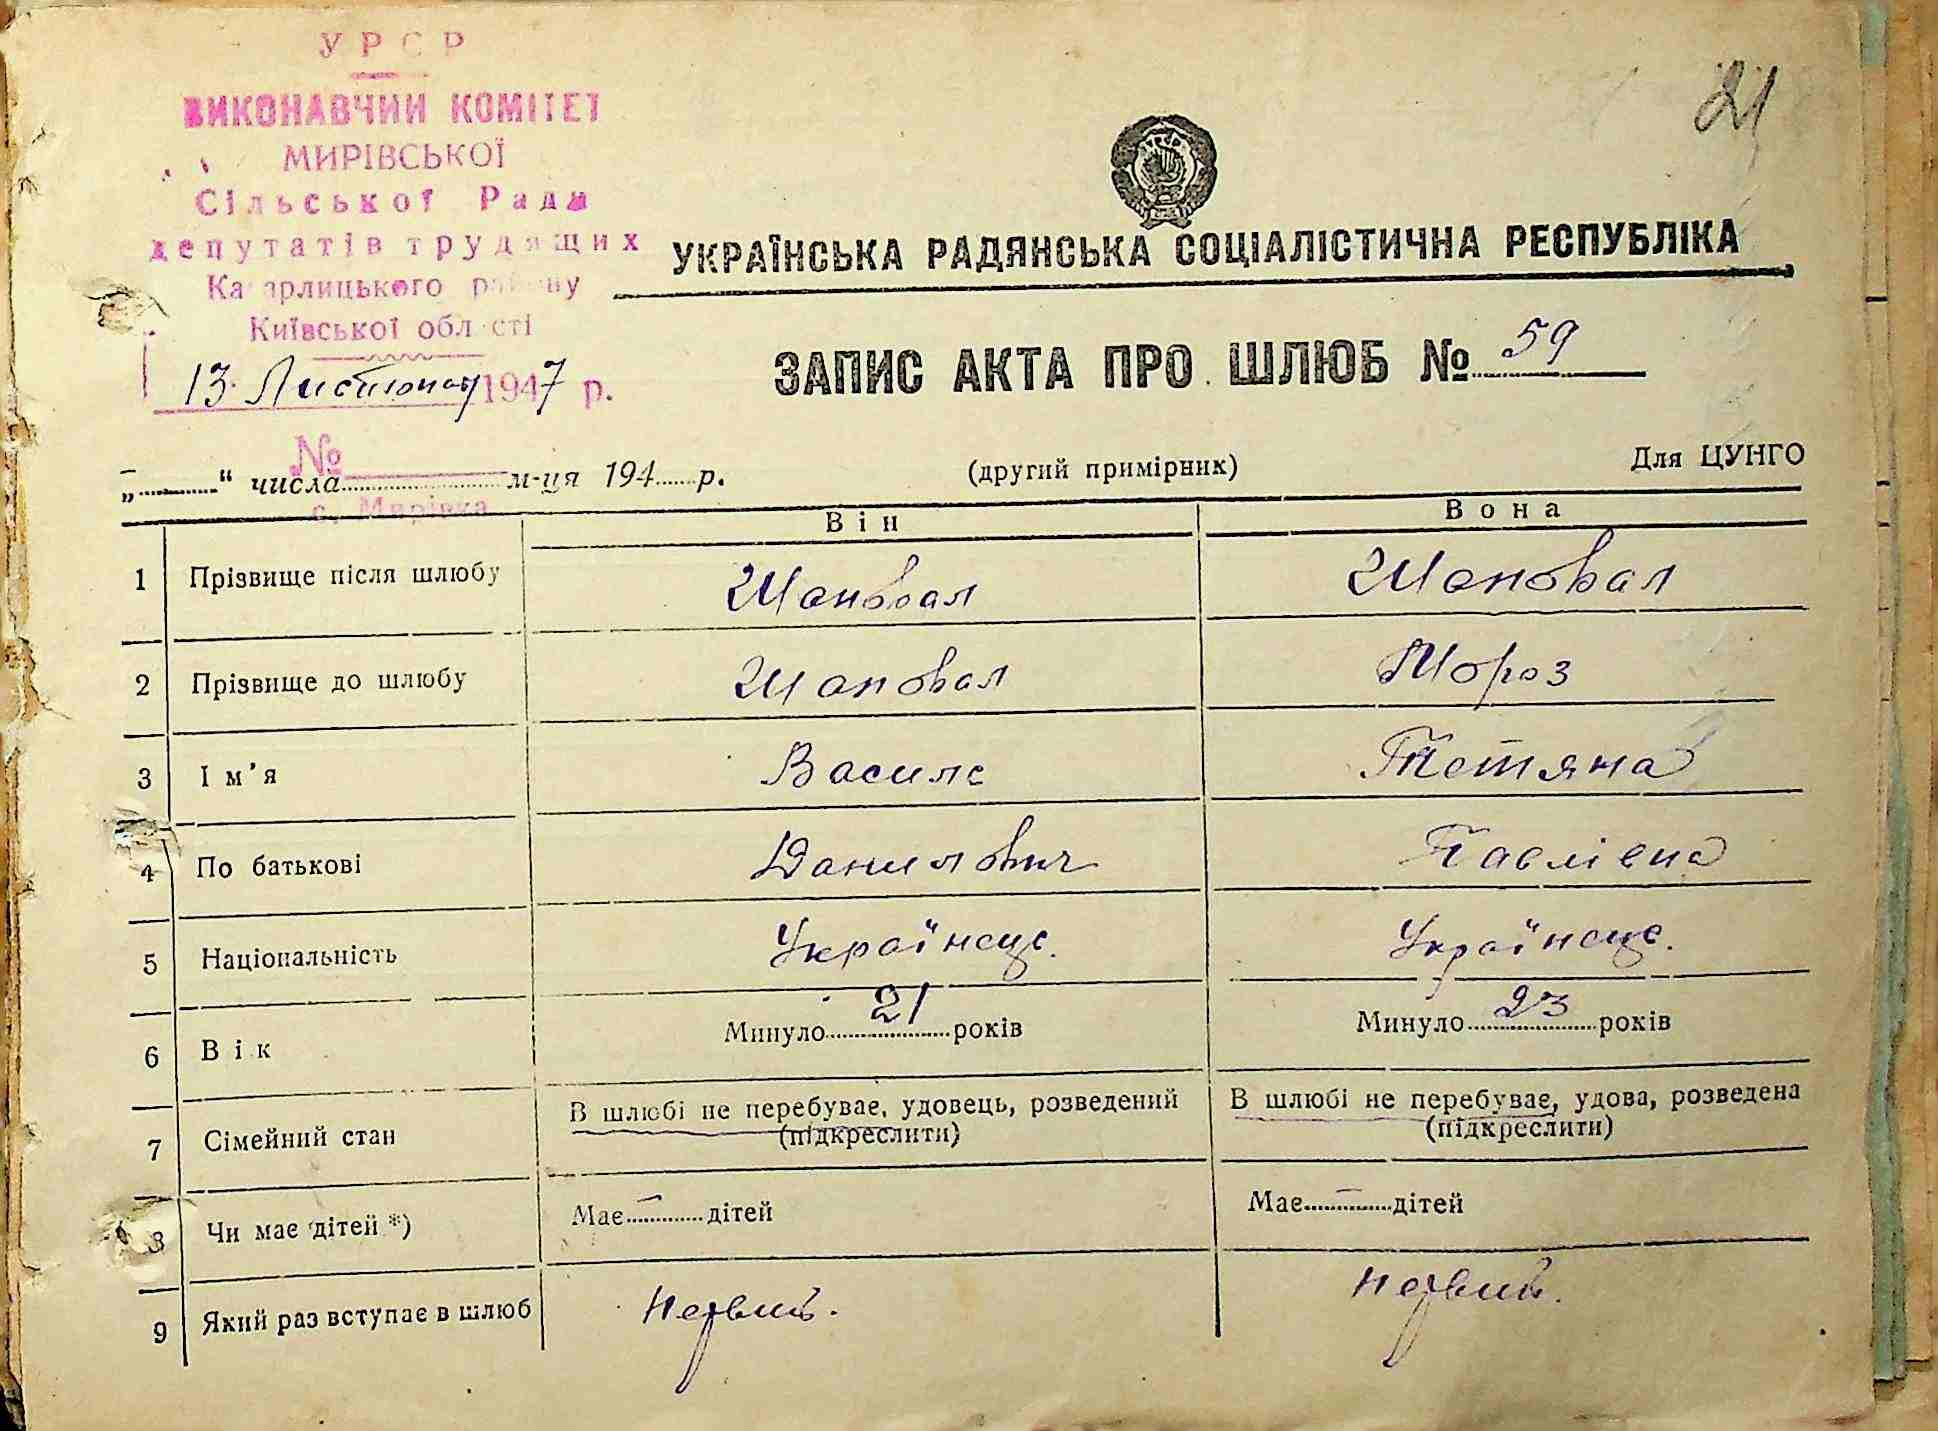 УРСР
ВИКОНАВЧИЙ КОМІТЕТ
МИРІВСЬКОЇ
Сільської Ради
депутатів трудящих
Кагарлицького району
Київської області
13 Листопад 1947 р.
№
с. Мирівка
21
УКРАЇНСЬКА РАДЯНСЬКА СОЦІАЛІСТИЧНА РЕСПУБЛІКА
ЗАПИС АКТА ПРО ШЛЮБ № 59
„ “ числа м-ця 194 р. (другий примірник) Для ЦУНГО
Він Вона
1 Прізвище після шлюбу Шаповал Шаповал
2 Прізвище до шлюбу Шаповал Мороз
3 Ім'я Василь Тетяна
4 По батькові Данилович Павлівна
5 Національність Українец. Українец.
6 Вік Минуло 21 років Минуло 23 років
7 Сімейний стан В шлюбі не перебуває, удовець, розведений (підкреслити) В шлюбі не перебуває, удова, розведена (підкреслити)
8 Чи має дітей *) Має — дітей Має — дітей
9 Який раз вступає в шлюб Первий. Первий.